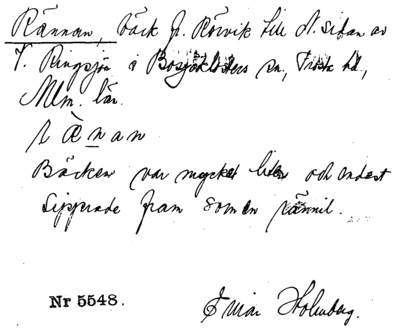 Rännan, bäck fr. Rörvik till N. sidan av
V. Ringsjön i Bosjöklosters sn, Frosta hd,
Mlm. län.
rænan
Bäcken var mycket liten och endast
sipprade fram som en rännil.
Nr 5548.
Holmberg.